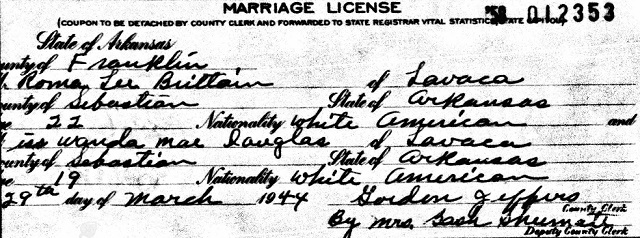 MARRIAGE LICENSE
(COUPON TO BE DETACHED BY COUNTY CLERK AND FORWARDED TO STATE REGISTRAR VITAL STATISTICS, STATE CAPITOL) 012353
State of Arkansas
ounty of Franklin
Roma Lee Brittain of Lavaca
ounty of Sebastian State of Arkansas
22 Nationality White American and
iss Wanda Mae Douglas of Lavaca
ounty of Sebastian State of Arkansas
19 Nationality White American
29th day of March 1944 Gordon Jeffers
County Clerk
By Mrs.
Deputy County Clerk